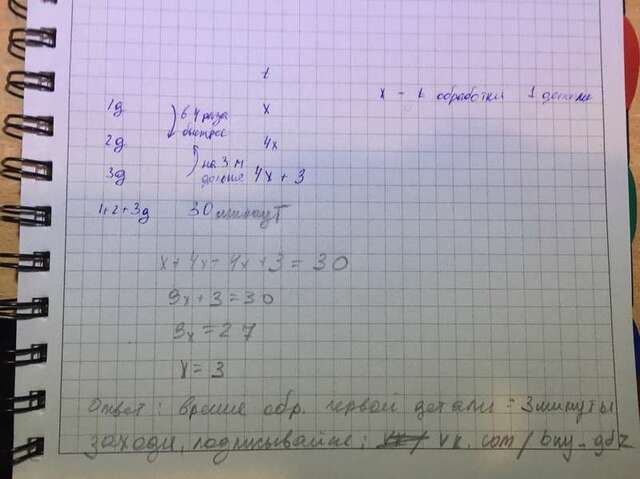 t
x - t обработки 1 детали
1д в 4 раза быстрее x
2д 4x
3д на 3 м дольше 4x + 3
1+2+3д 30 минут
x + 4x - 4x + 3 = 30
9x + 3 = 30
9x = 27
x = 3
Ответ: время обр. первой детали = 3 минуты
заходи, подписывайте: vk.com/bny_gdz